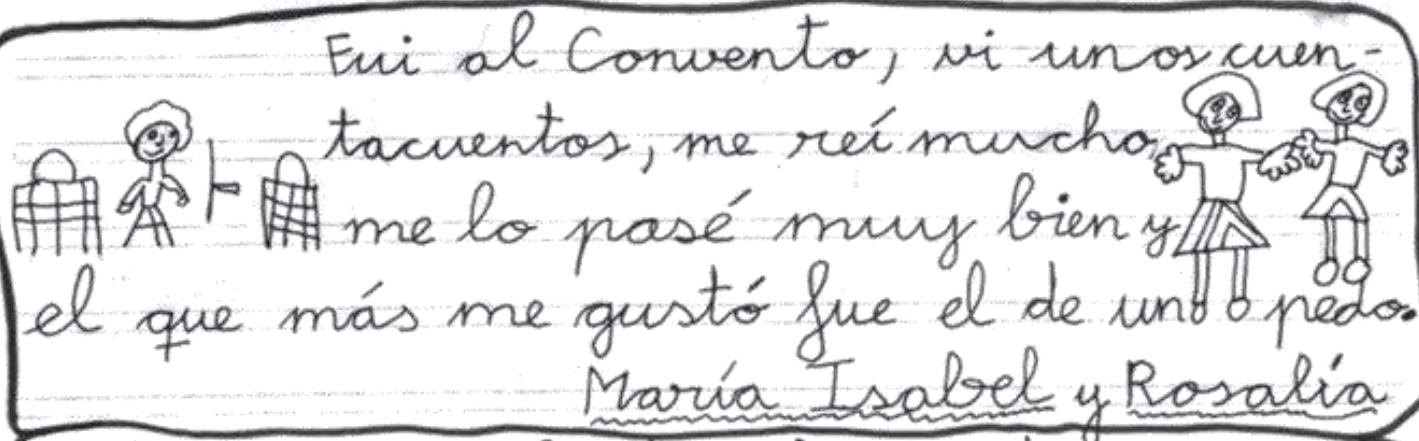 Fui al Convento, vi unos cuen-
tacuentos, me reí mucho,
me lo pasé muy bien y
el que más me gustó fue el de un pedo.
María Isabel y Rosalía